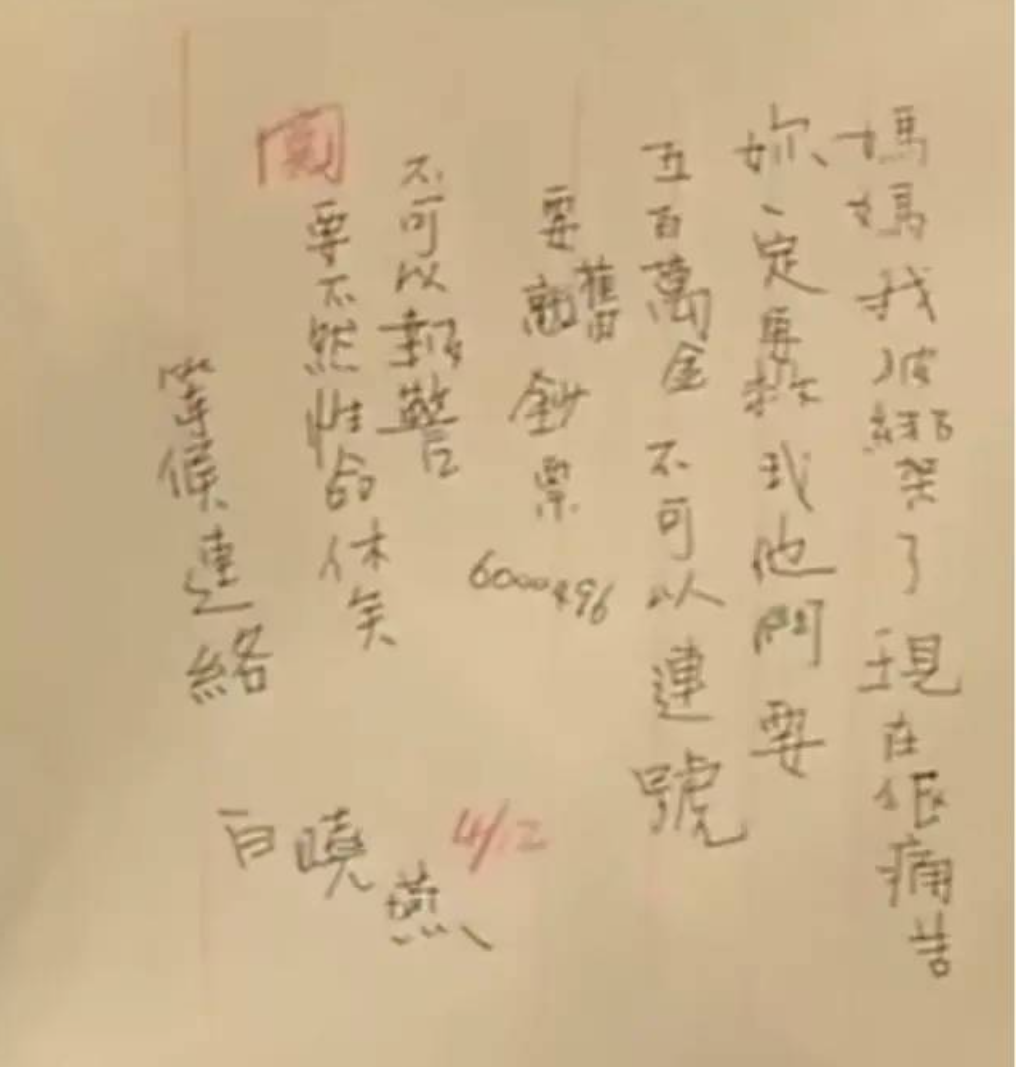 媽媽我被綁架了現在很痛苦
妳一定要救我他門要
五百萬金不可以連號
要舊鈔票
6000496
不可以報警
要不然性命休矣
等候連絡
白曉燕
4/12